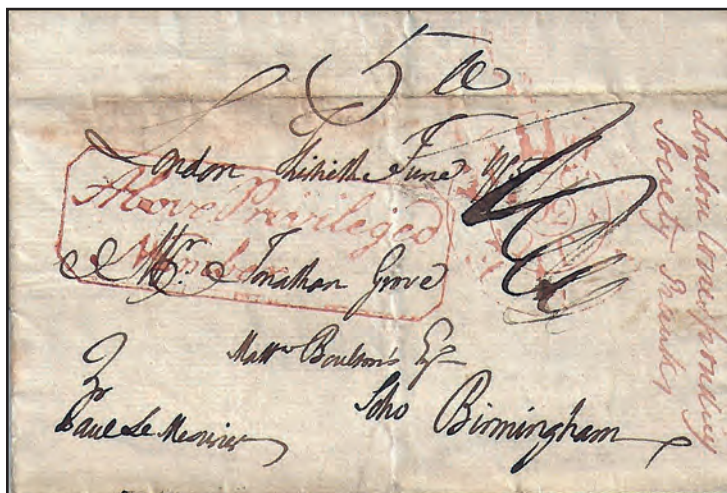 London thirtieth June 1795
Above Privileged
Number
Mr. Jonathan Grove
Mattw Boulton's Esqr
Soho Birmingham
Paul Le Mesurier
London Corresponding
Society